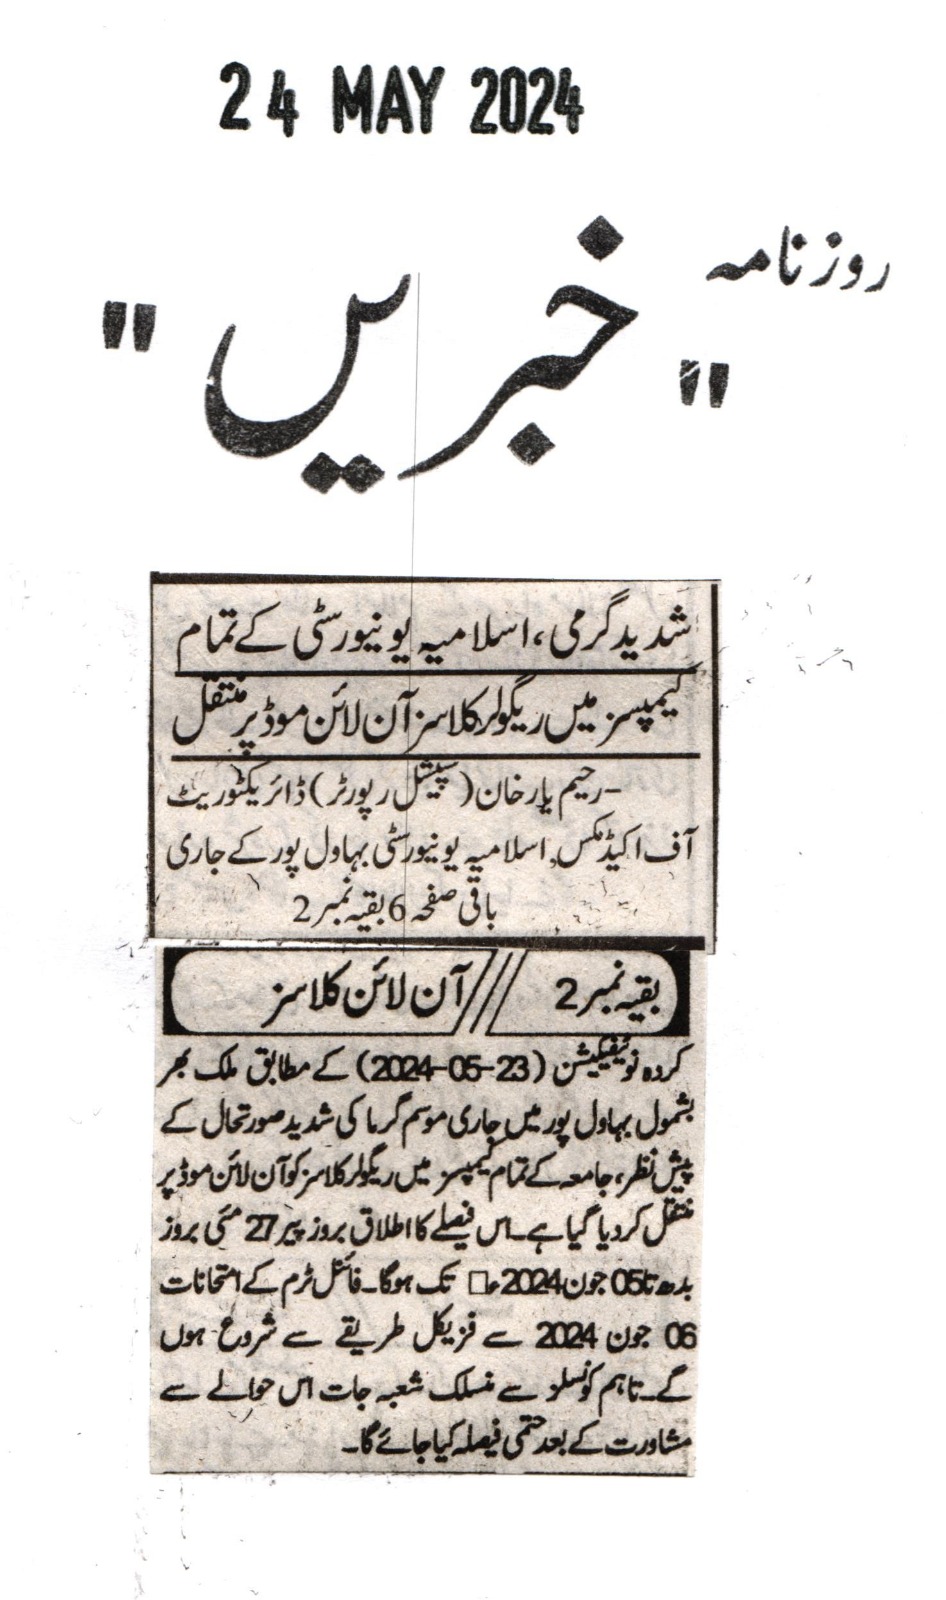 24 MAY 2024
روزنامہ
"خبریں"
شدید گرمی، اسلامیہ یونیورسٹی کے تمام
کیمپسز میں ریگولر کلاسز آن لائن موڈ پر منتقل
رحیم یار خان (سپیشل رپورٹر) ڈائریکٹوریٹ
آف اکیڈمکس، اسلامیہ یونیورسٹی بہاول پور کے جاری
باقی صفحہ 6 بقیہ نمبر 2
بقیہ نمبر 2 /// آن لائن کلاسز
کردہ نوٹیفیکیشن (23-05-2024) کے مطابق ملک بھر
بشمول بہاول پور میں جاری موسم گرما کی شدید صورتحال کے
پیش نظر، جامعہ کے تمام کیمپسز میں ریگولر کلاسز کو آن لائن موڈ پر
منتقل کر دیا گیا ہے۔ اس فیصلے کا اطلاق بروز پیر 27 مئی بروز
بدھ تا 05 جون 2024ء□ تک ہوگا۔ فائنل ٹرم کے امتحانات
06 جون 2024 سے فزیکل طریقے سے شروع ہوں
گے۔ تاہم کونسلز سے منسلک شعبہ جات اس حوالے سے
مشاورت کے بعد حتمی فیصلہ کیا جائے گا۔